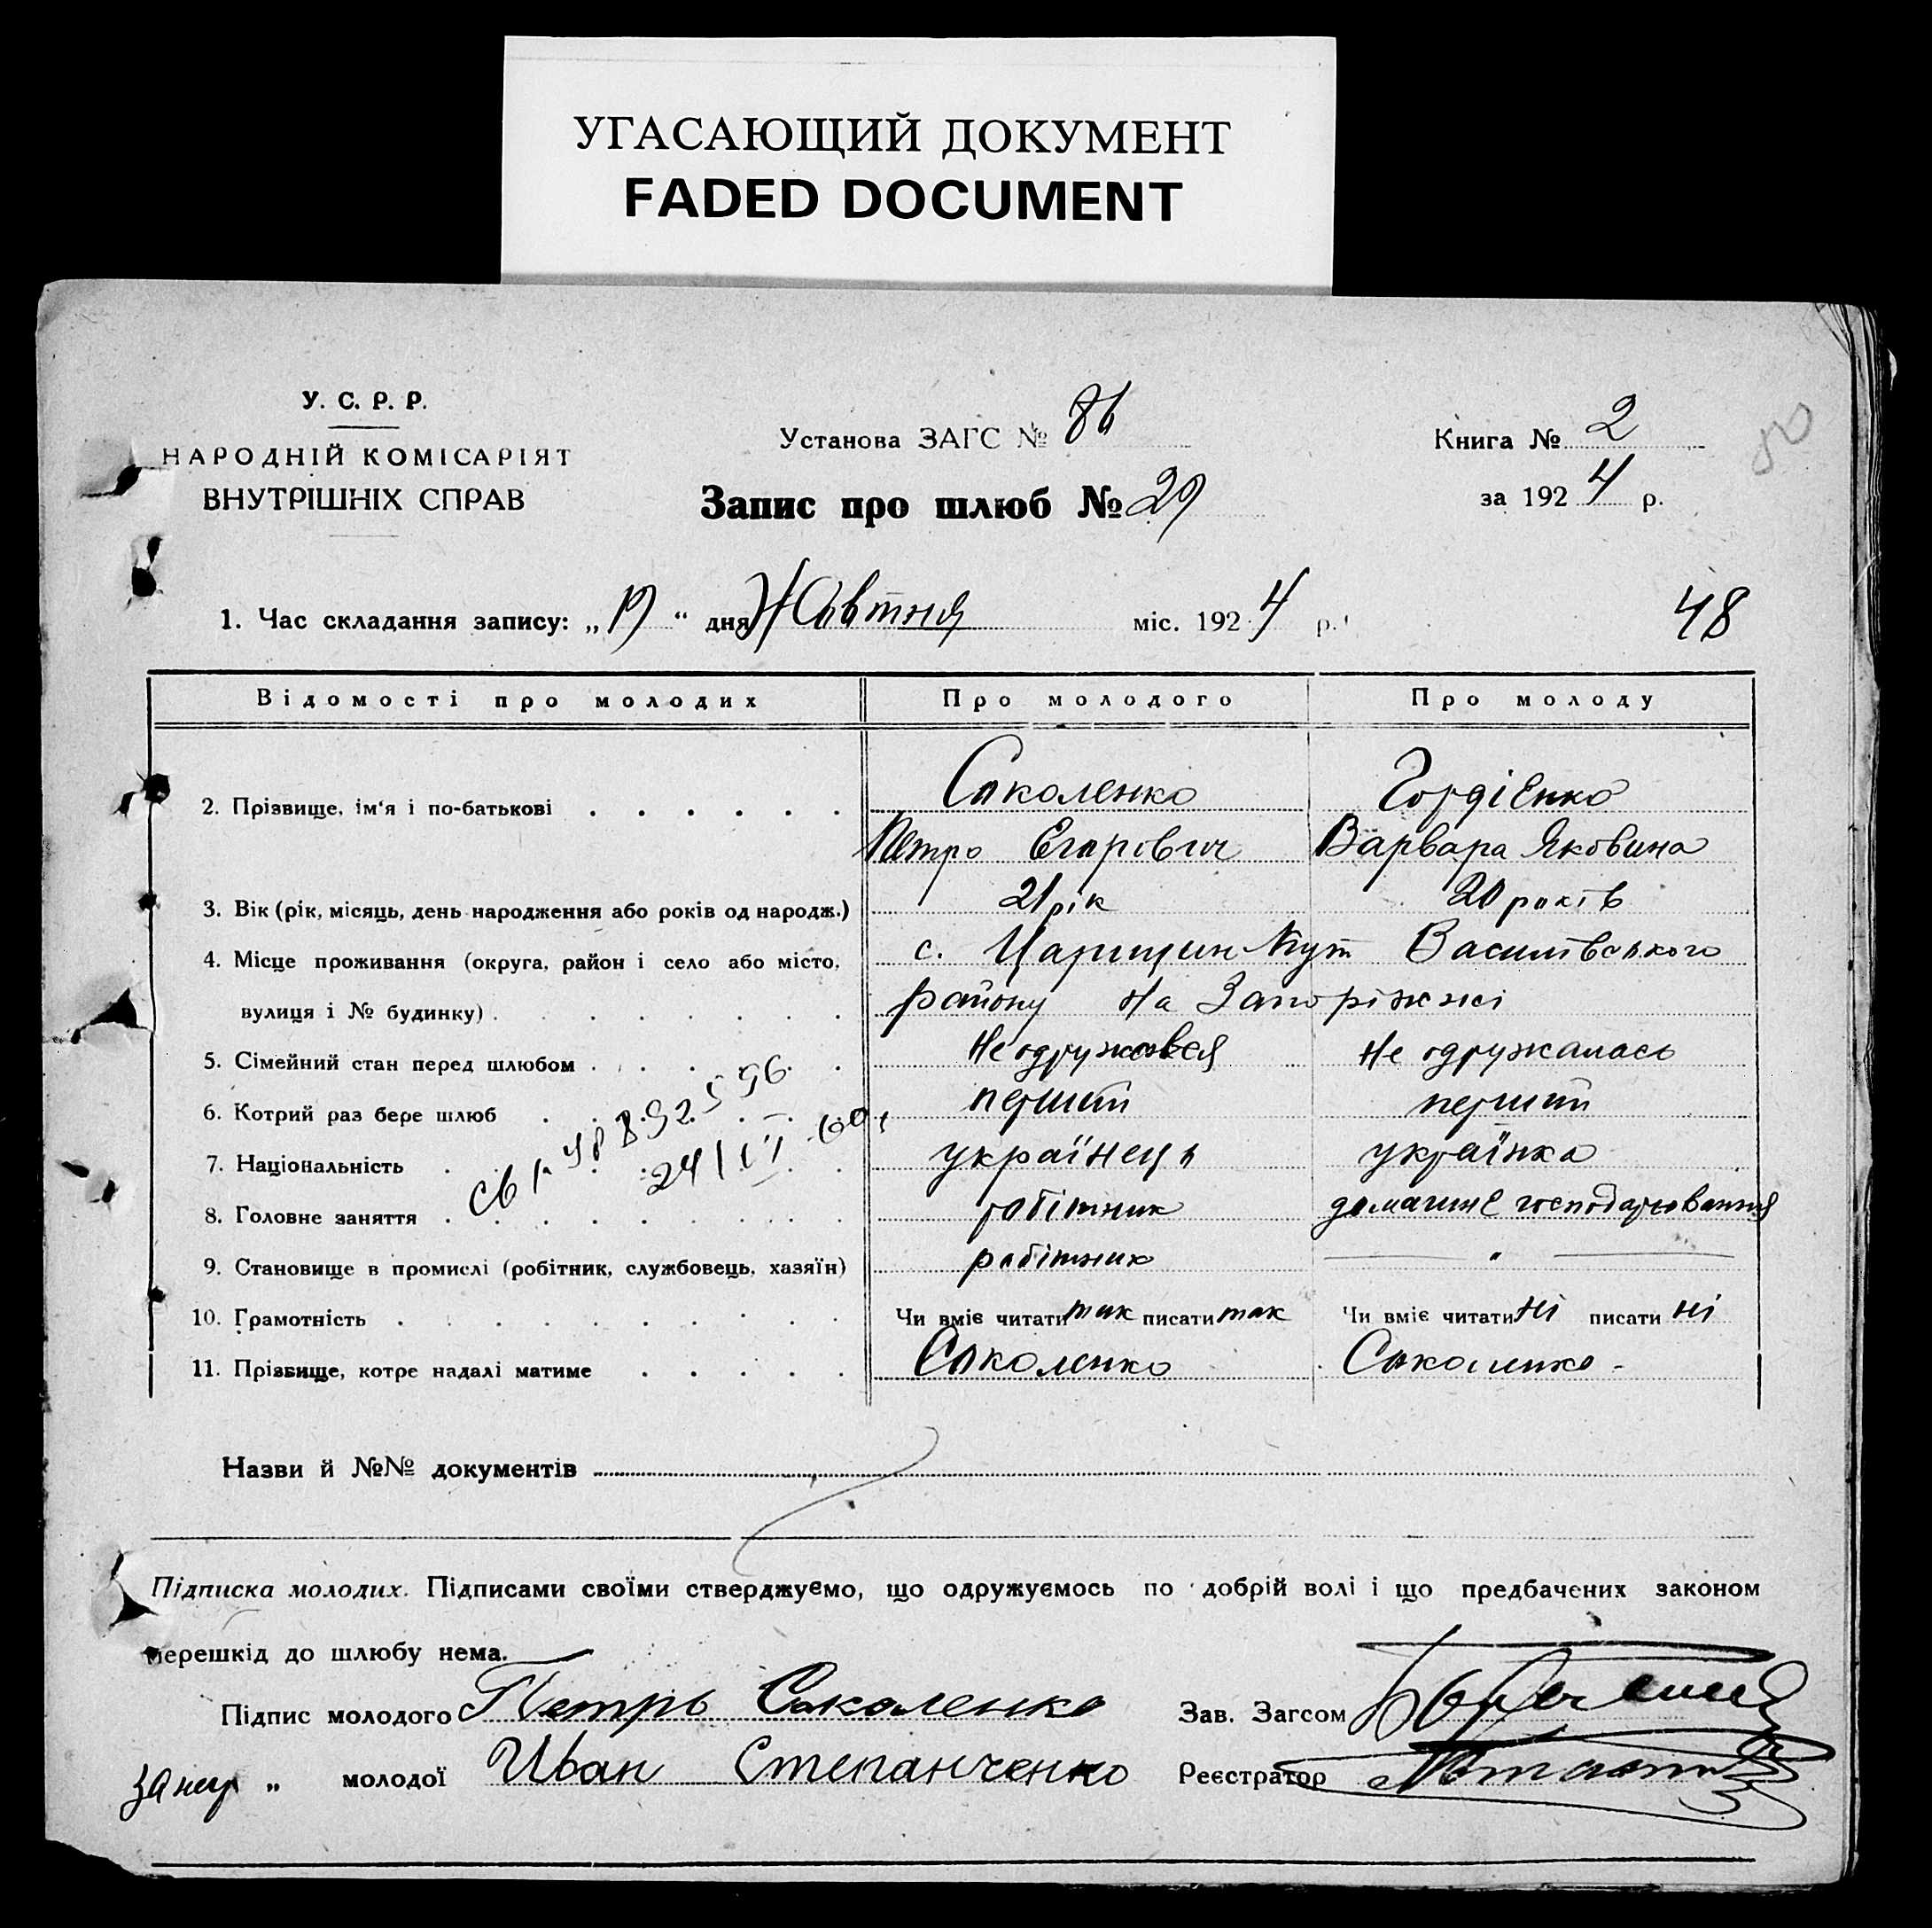 УГАСАЮЩИЙ ДОКУМЕНТ
FADED DOCUMENT
У. С. Р. Р.
НАРОДНІЙ КОМІСАРІЯТ
ВНУТРІШНІХ СПРАВ
Установа ЗАГС № 86
Запис про шлюб № 29
Книга № 2
за 1924 р.
50
1. Час складання запису: „19“ дня Жовтня міс. 1924 р.
48
Відомості про молодих Про молодого Про молоду
Соколенко Гордієнко
2. Прізвище, ім'я і по-батькові
Петро Єгорович Варвара Яковина
3. Вік (рік, місяць, день народження або років од народж.) 21 рік 20 років
4. Місце проживання (округа, район і село або місто, с. Царицин Кут Василівського
вулиця і № будинку) району на Запоріжжі
5. Сімейний стан перед шлюбом Не одружався Не одружалась
6. Котрий раз бере шлюб перший перший
7. Національність українець українка
8. Головне заняття робітник домашнє господарювання
9. Становище в промислі (робітник, службовець, хазяїн) робітник "
10. Грамотність Чи вміє читати так писати так Чи вміє читати ні писати ні
11. Прізвище, котре надалі матиме Соколенко Соколенко
Назви й №№ документів
Підписка молодих. Підписами своїми стверджуємо, що одружуємось по добрій волі і що предбачених законом
перешкід до шлюбу нема.
Підпис молодого Петръ Соколенко Зав. Загсом
за неї „ молодої Иван Степанченко Реєстратор